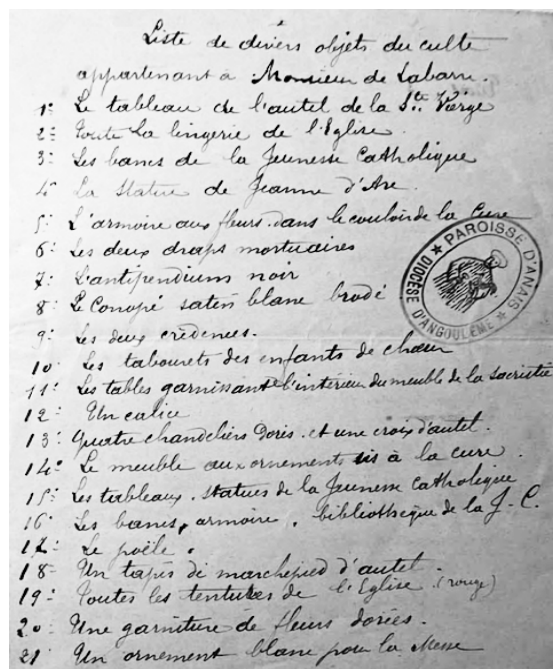 Liste de divers objets du culte
appartenant à Monsieur de Labarre.
1: Le tableau de l'autel de la Ste Vierge
2: Toute la lingerie de l'Eglise.
3: Les bancs de la Jeunesse Catholique
4: La statue de Jeanne d'Arc.
5: L'armoire aux fleurs dans le couloir de la Cure
6: Les deux draps mortuaires
7: L'antipendium noir
8: Le Conopé satin blanc brodé
9: Les deux crédences.
10: Les tabourets des enfants de chœur
11: Les tables garnissant l'intérieur du meuble de la Sacristie
12: Un calice
13: Quatre chandeliers dorés et une croix d'autel.
14: Le meuble aux ornements sis à la cure.
15: Les tableaux, statues de la Jeunesse Catholique
16: Les bancs, armoire, bibliothèque de la J-C.
17: Le poële.
18: Un tapis de marchepied d'autel.
19: Toutes les tentures de l'Eglise (rouge)
20: Une garniture de fleurs dorées.
21: Un ornement blanc pour la Messe
PAROISSE D'ANAIS
DIOCÈSE D'ANGOULÊME